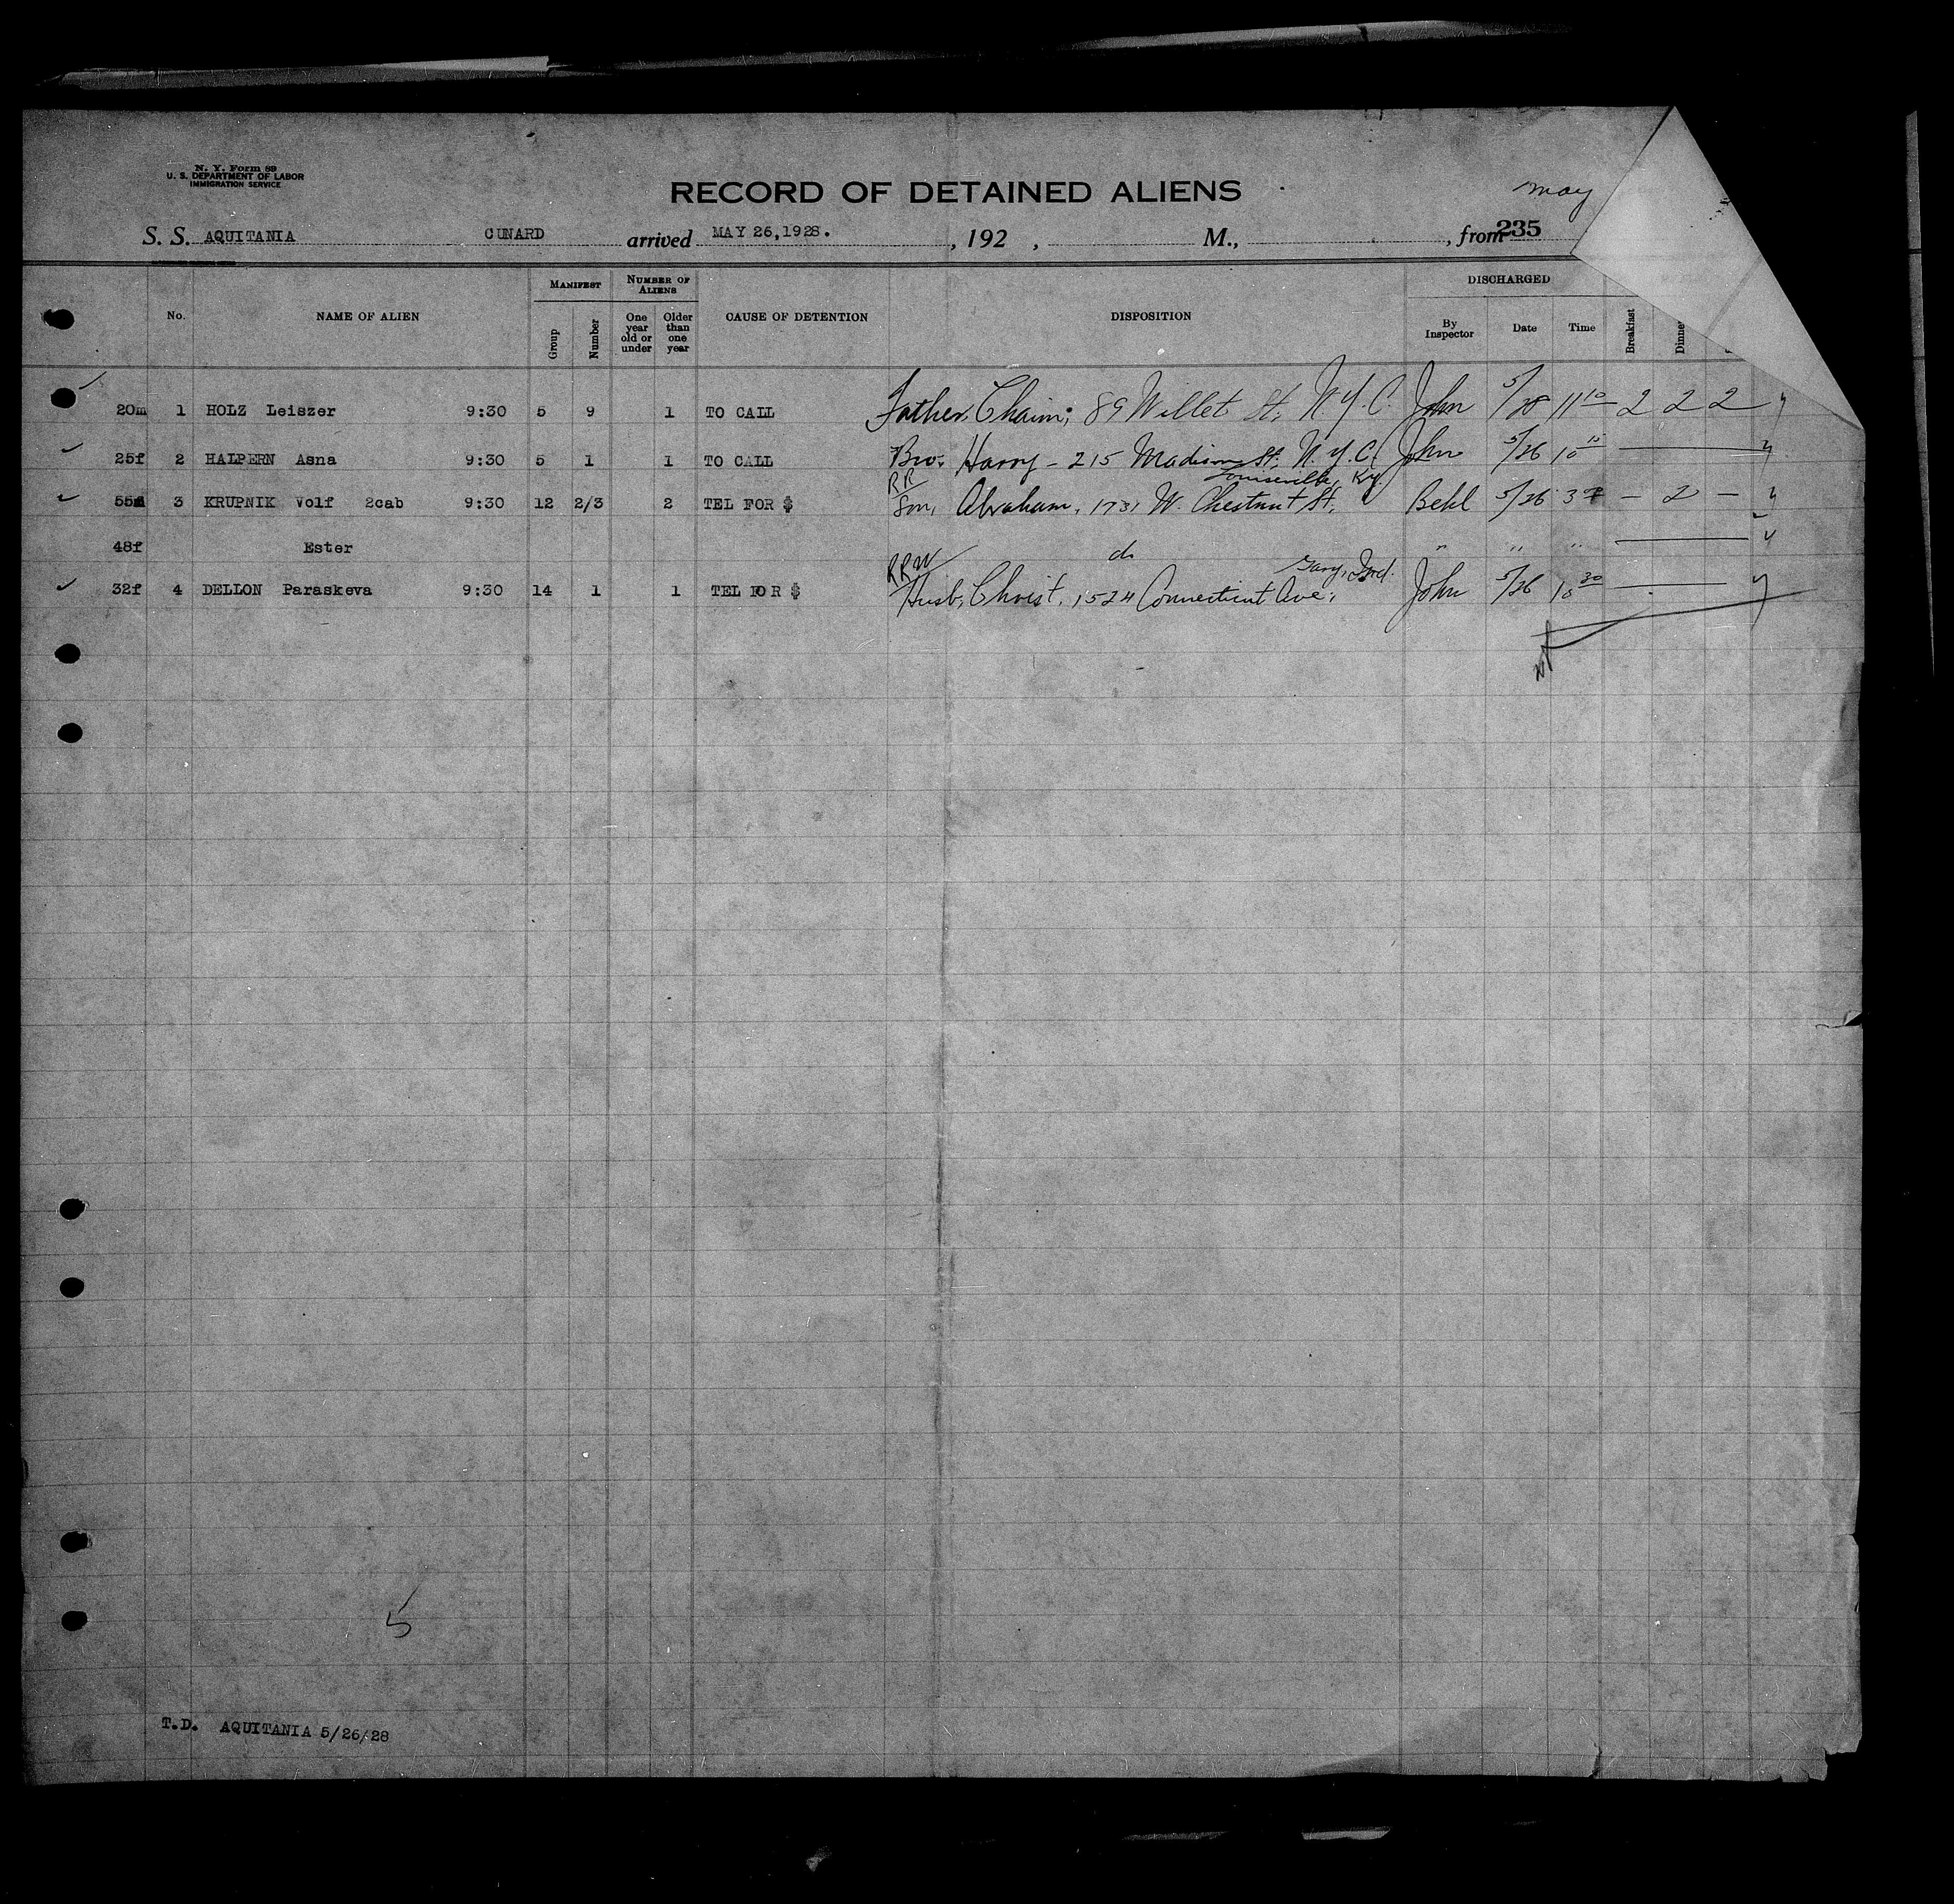 N. Y. Form 89
U. S. DEPARTMENT OF LABOR
IMMIGRATION SERVICE
RECORD OF DETAINED ALIENS
may
S. S. AQUITANIA CUNARD arrived MAY 26,1928. , 192 , M., , from 235
No. NAME OF ALIEN MANIFEST Group Number NUMBER OF ALIENS One year old or under Older than one year CAUSE OF DETENTION DISPOSITION DISCHARGED By Inspector Date Time Breakfast Dinner
20m 1 HOLZ Leiszer 9:30 5 9 1 TO CALL Father, Chaim; 89 Willet St, N.Y.C. John 5/28 11 10 2 2 2
25f 2 HALPERN Asna 9:30 5 1 1 TO CALL Bro. Harry - 215 Madison St, N.Y.C. John 5/26 10 15
RR Louisville, Ky.
55m 3 KRUPNIK Volf 2cab 9:30 12 2/3 2 TEL FOR $ Son, Abraham, 1731 W. Chestnut St, Behl 5/26 3 – 2 –
48f Ester do " " "
RRW Gary, Ind.
32f 4 DELLON Paraskeva 9:30 14 1 1 TEL FOR $ Husb, Christ, 1524 Connecticut Ave, John 5/26 10 30
5
T.D. AQUITANIA 5/26/28